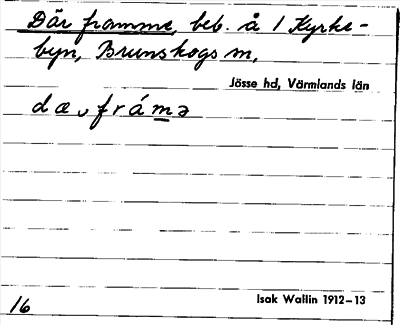 Där framme, beb. å 1 Kyrke-
byn, Brunskogs sn,
Jösse hd, Värmlands län
dæ⌣frámə
Isak Wallin 1912–13
16